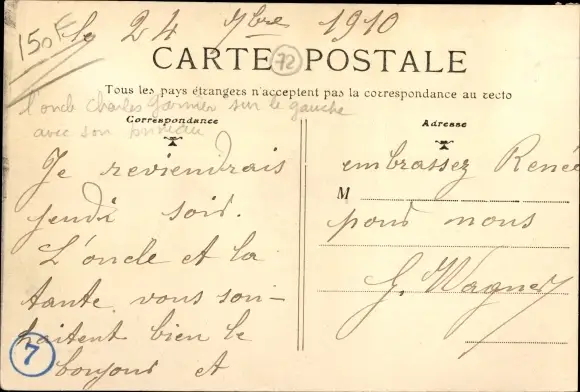 150F
le 24 7bre 1910
CARTE POSTALE
72
Tous les pays étrangers n'acceptent pas la correspondance au recto
l'oncle Charles Garnier sur le gauche
avec son
Correspondance
Je reviendrais
jeudi soir.
L'oncle et la
tante vous sou-
haitent bien le
bonjour et
7
Adresse
embrassez Renée
M
pour nous
G. Wagner